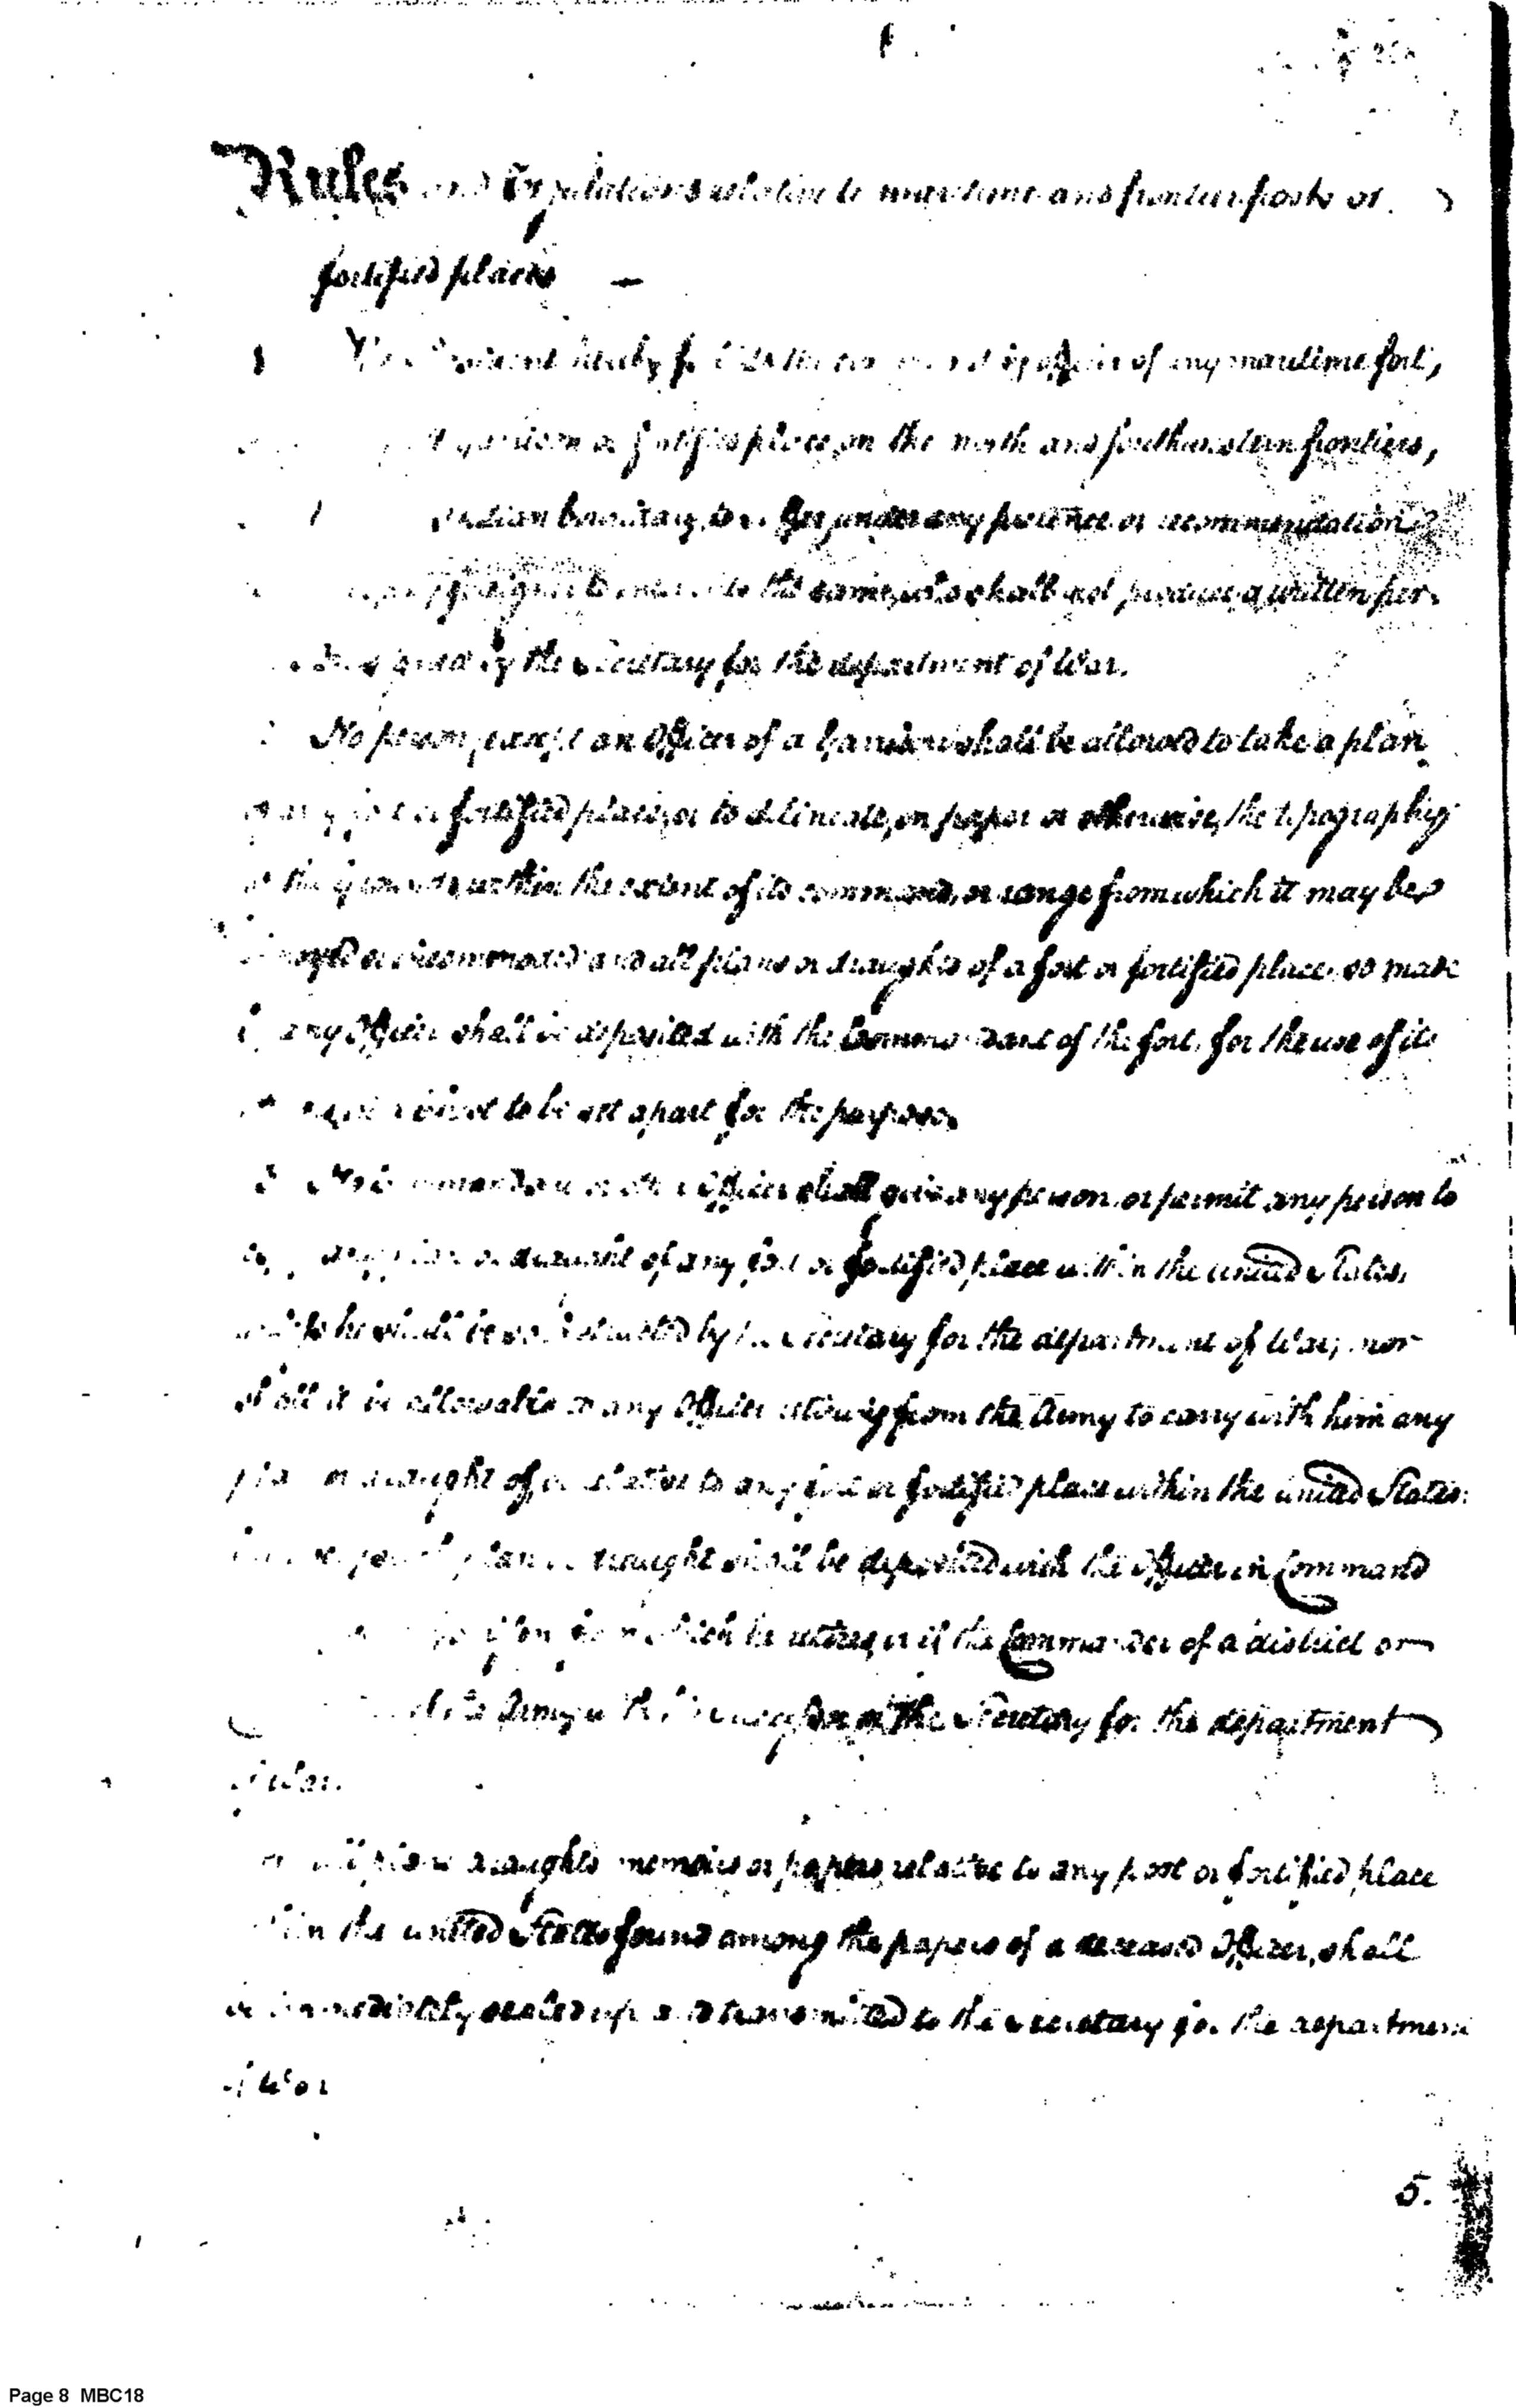 Rules and Regulations relative to maritime and frontier posts or
fortified places —
1 The President hereby forbids the commanding officer of any maritime fort,
garrison or fortified place, on the north and southwestern frontiers,
Indian boundary, to suffer, under any pretence or recommendation
any foreigner to enter into the same, who shall not produce a written per-
signed by the Secretary for the department of War.
No person, except an Officer of a Garrison shall be allowed to take a plan
of any fort or fortified place, or to delineate, on paper or otherwise, the topography
of the grounds within the extent of its command, or range from which it may be
annoyed or incommoded and all plans or draughts of a fort or fortified place so made
by any Officer shall be deposited with the Commandant of the fort, for the use of its
to be set apart for the purpose.
3 No Commandant or other Officer shall give any person, or permit any person to
any plan or draught of any fort or fortified place within the united States,
unless he shall be so instructed by the Secretary for the department of War; nor
shall it be allowable to any Officer retiring from the Army to carry with him any
plan or draught of or relative to any fort or fortified place within the united States:
plan or draught shall be deposited with the Officer in Command
from which he retires, or if the Commander of a district or
Army, with his successor or the Secretary for the department
of War.
all plans draughts memoirs or papers relative to any post or fortified place
within the united States found among the papers of a deceased Officer, shall
be immediately sealed up and transmitted to the Secretary for the department
of War
5.
Page 8 MBC18